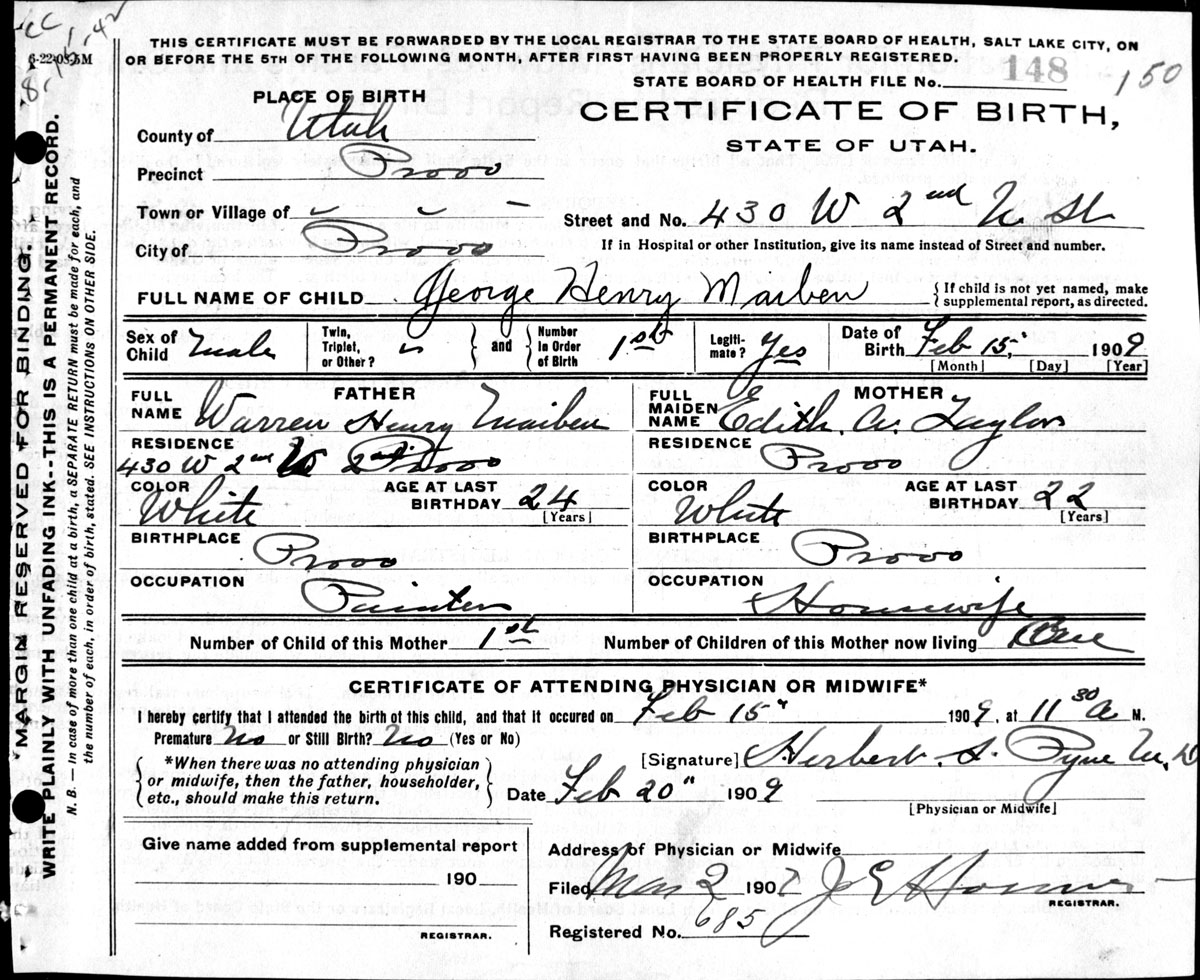 THIS CERTIFICATE MUST BE FORWARDED BY THE LOCAL REGISTRAR TO THE STATE BOARD OF HEALTH, SALT LAKE CITY, ON
OR BEFORE THE 5TH OF THE FOLLOWING MONTH, AFTER FIRST HAVING BEEN PROPERLY REGISTERED.
STATE BOARD OF HEALTH FILE No. 148 150
PLACE OF BIRTH
CERTIFICATE OF BIRTH,
STATE OF UTAH.
County of Utah
Precinct Provo
Town or Village of
Street and No. 430 W 2nd N. St
City of Provo
If in Hospital or other Institution, give its name instead of Street and number.
FULL NAME OF CHILD George Henry Maiben
{ If child is not yet named, make
supplemental report, as directed.
Sex of Child Male
Twin, Triplet, or Other?
and
Number in Order of Birth 1st
Legiti-mate? Yes
Date of Birth Feb 15, 1909
[Month] [Day] [Year]
FATHER
FULL NAME Warren Henry Maiben
RESIDENCE
430 W 2nd Provo
COLOR White
AGE AT LAST BIRTHDAY 24
[Years]
BIRTHPLACE Provo
OCCUPATION Painter
MOTHER
FULL MAIDEN NAME Edith. A. Taylor
RESIDENCE Provo
COLOR White
AGE AT LAST BIRTHDAY 22
[Years]
BIRTHPLACE Provo
OCCUPATION Housewife
Number of Child of this Mother 1st
Number of Children of this Mother now living One
CERTIFICATE OF ATTENDING PHYSICIAN OR MIDWIFE*
I hereby certify that I attended the birth of this child, and that it occured on Feb 15" 1909, at 11 30 A M.
Premature No or Still Birth? No (Yes or No)
*When there was no attending physician
or midwife, then the father, householder,
etc., should make this return.
[Signature] Herbert. S. Pyne M.D
Date Feb 20" 1909
[Physician or Midwife]
Give name added from supplemental report
190
REGISTRAR.
Address of Physician or Midwife
Filed Mar 2 190 J E
REGISTRAR.
Registered No. 685
MARGIN RESERVED FOR BINDING
WRITE PLAINLY WITH UNFADING INK--THIS IS A PERMANENT RECORD.
N. B.— In case of more than one child at a birth, a SEPARATE RETURN must be made for each, and
the number of each, in order of birth, stated. SEE INSTRUCTIONS ON OTHER SIDE.